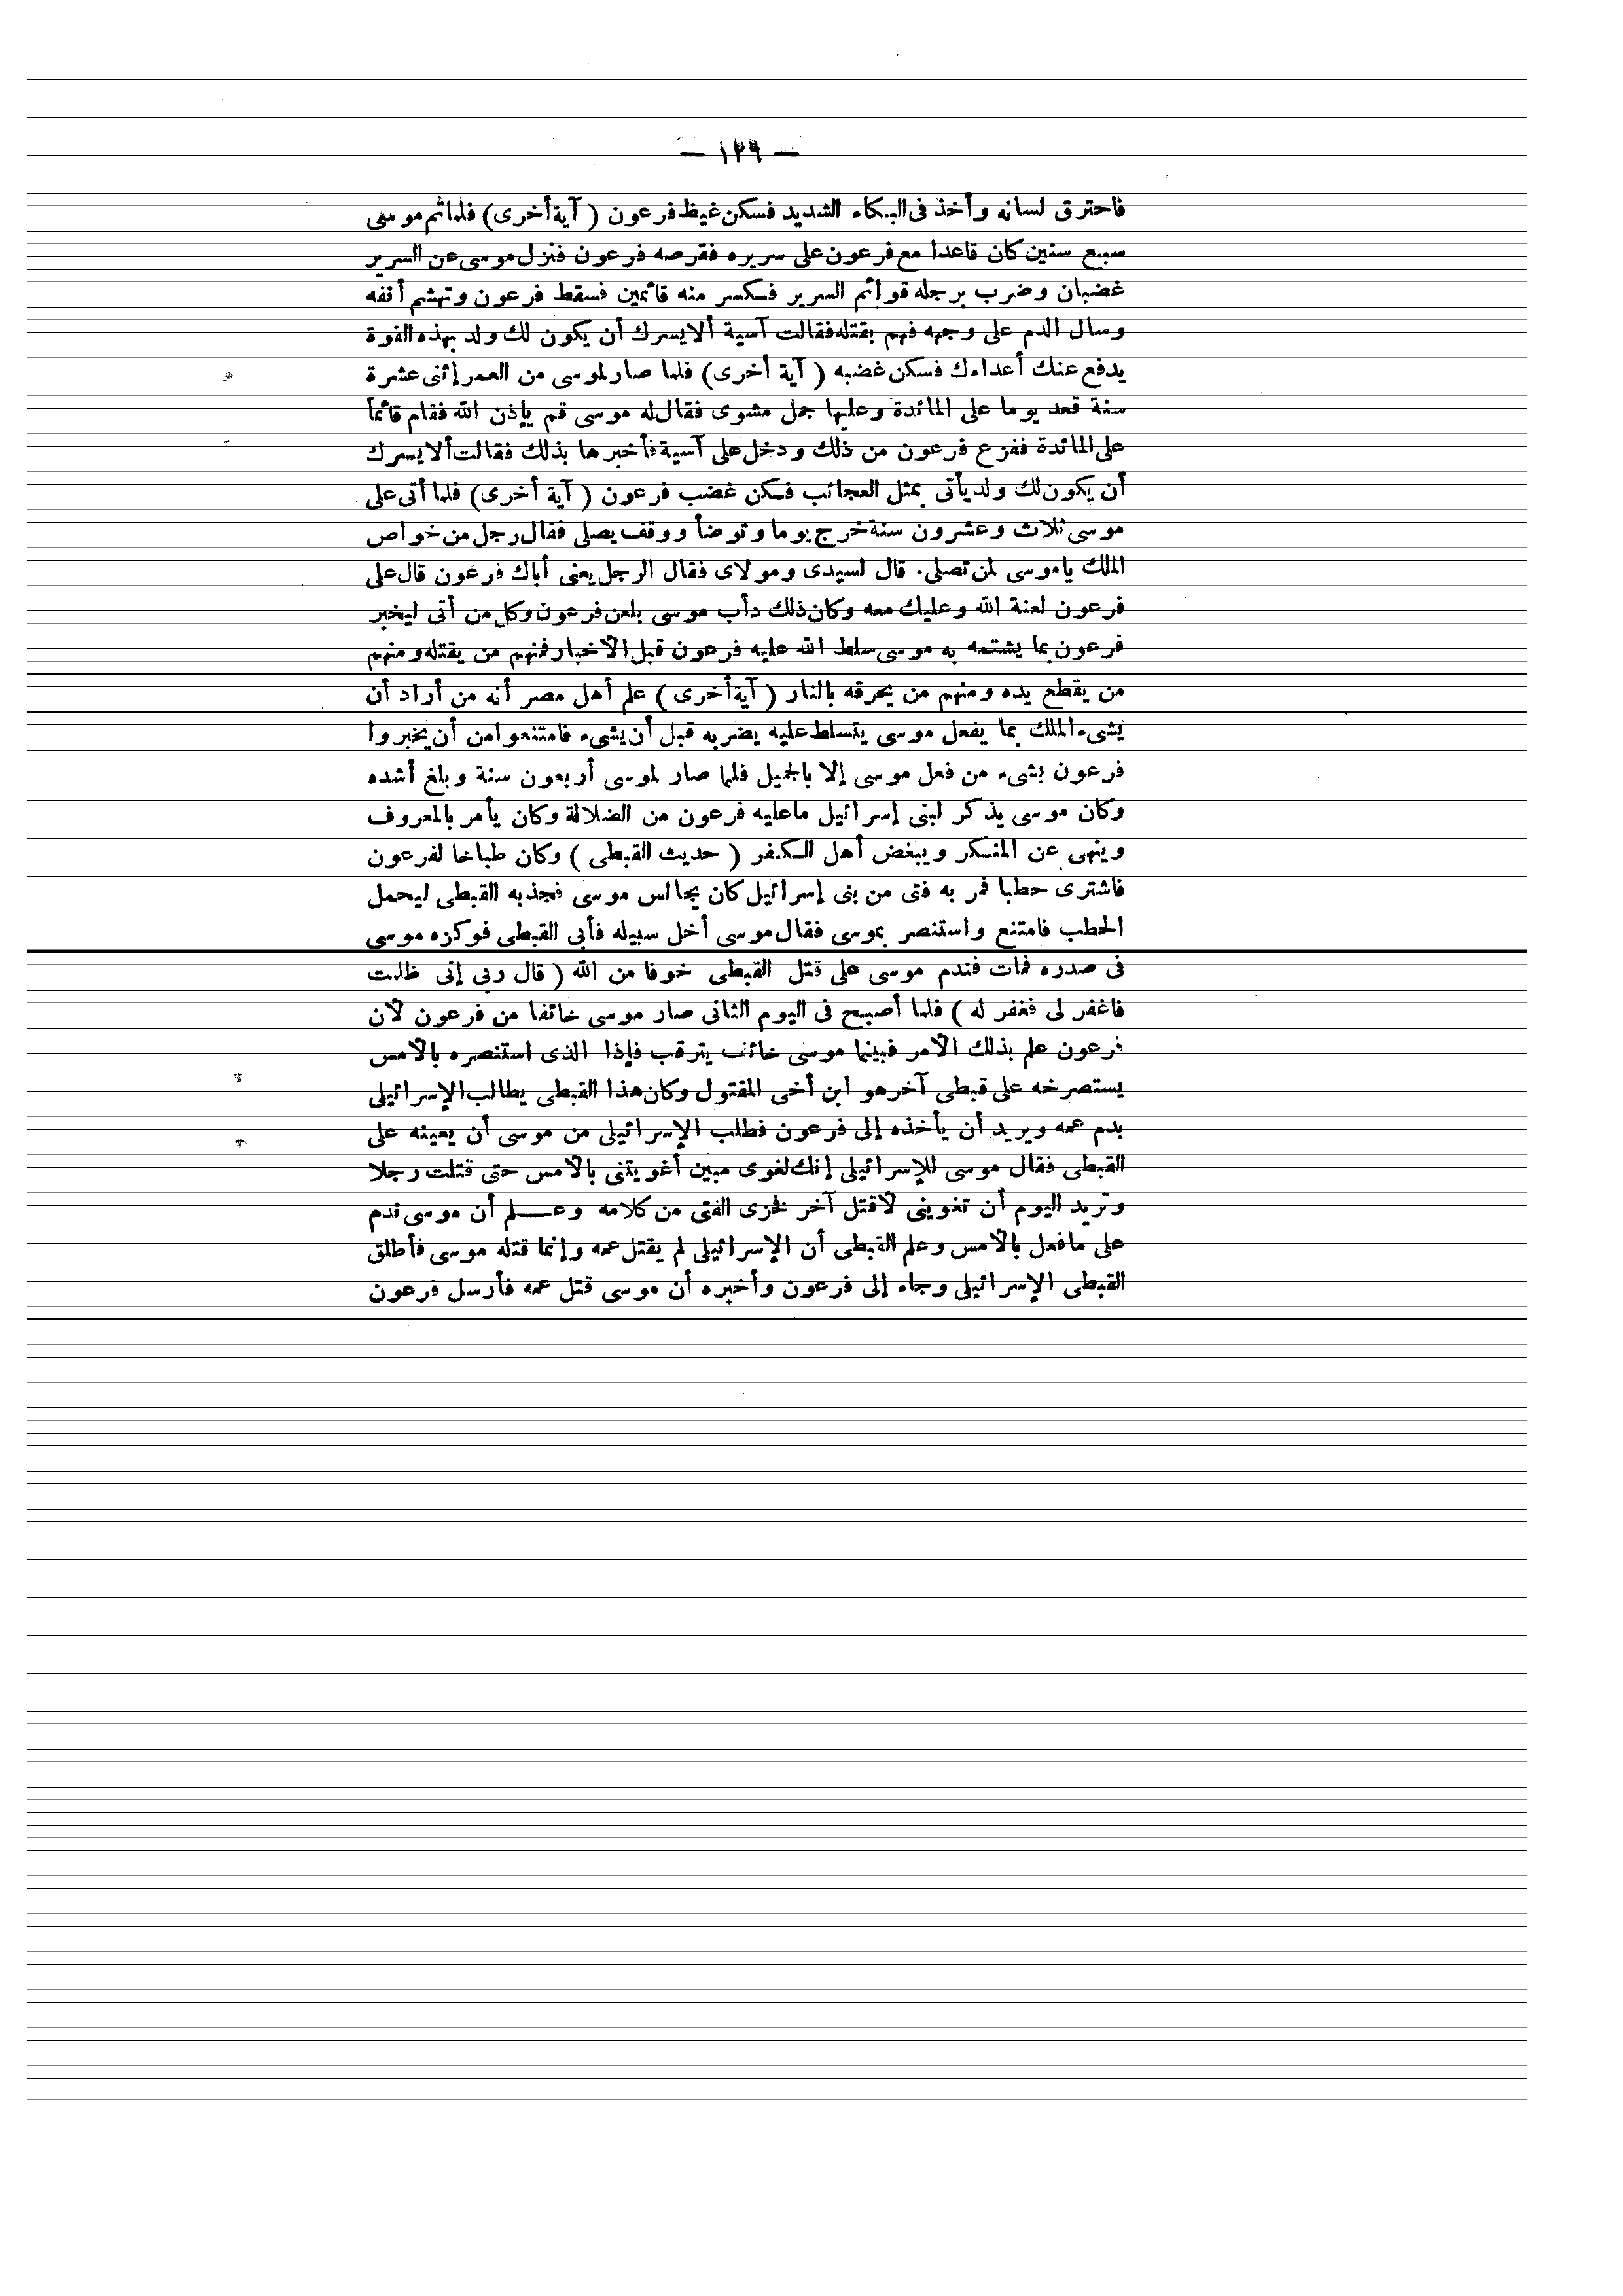 — ١٢٩ —
فاحترق لسانه وأخذ فى البكاء الشديد فسكن غيظ فرعون ( آية أخرى ) فلما تم موسى
سبع سنين كان قاعدا مع فرعون على سريره فقرصه فرعون فنزل موسى عن السرير
غضبان وضرب برجله قوائم السرير فكسر منه قائمين فسقط فرعون وتهشم أنفه
وسال الدم على وجهه فهم بقتله فقالت آسية ألا يسرك أن يكون لك ولد بهذه القوة
يدفع عنك أعداءك فسكن غضبه ( آية أخرى ) فلما صار لموسى من العمر إثنى عشرة
سنة قعد يوما على المائدة وعليها جمل مشوى فقال له موسى قم بإذن الله فقام قائماً
على المائدة ففزع فرعون من ذلك ودخل على آسية فأخبرها بذلك فقالت ألا يسرك
أن يكون لك ولد يأتى بمثل العجائب فسكن غضب فرعون ( آية أخرى ) فلما أتى على
موسى ثلاث وعشرون سنة خرج يوما وتوضأ ووقف يصلى فقال رجل من خواص
الملك ياموسى لمن تصلى. قال لسيدى ومولاى فقال الرجل يعنى أباك فرعون قال على
فرعون لعنة الله وعليك معه وكان ذلك دأب موسى بلعن فرعون وكل من أتى ليخبر
فرعون بما يشتمه به موسى سلط الله عليه فرعون قبل الاخبار فمنهم من يقتله ومنهم
من يقطع يده ومنهم من يحرقه بالنار ( آية أخرى ) علم أهل مصر أنه من أراد أن
يشىء الملك بما يفعل موسى يتسلط عليه يضربه قبل أن يشىء فامتنعوا من أن يخبروا
فرعون بشىء من فعل موسى إلا بالجميل فلما صار لموسى أربعون سنة وبلغ أشده
وكان موسى يذكر لبنى إسرائيل ماعليه فرعون من الضلالة وكان يأمر بالمعروف
وينهى عن المنكر ويبغض أهل الكفر ( حديث القبطى ) وكان طباخا لفرعون
فاشترى حطبا فمر به فتى من بنى إسرائيل كان يجالس موسى فجذبه القبطى ليحمل
الحطب فامتنع واستنصر بموسى فقال موسى أخل سبيله فأبى القبطى فوكزه موسى
فى صدره فمات فندم موسى على قتل القبطى خوفا من الله ( قال ربى إنى ظلمت
فاغفر لى فغفر له ) فلما أصبح فى اليوم الثانى صار موسى خائفا من فرعون لأن
فرعون علم بذلك الأمر فبينما موسى خائف يترقب فإذا الذى استنصره بالأمس
يستصرخه على قبطى آخر هو ابن أخى المقتول وكان هذا القبطى يطالب الإسرائيلى
بدم عمه ويريد أن يأخذه إلى فرعون فطلب الإسرائيلى من موسى أن يعينه على
القبطى فقال موسى للإسرائيلى إنك لغوى مبين أغويتنى بالأمس حتى قتلت رجلا
وتريد اليوم أن تغوينى لأقتل آخر فخزى الفتى من كلامه وعلم أن موسى ندم
على مافعل بالأمس وعلم القبطى أن الإسرائيلى لم يقتل عمه وإنما قتله موسى فأطلق
القبطى الإسرائيلى وجاء إلى فرعون وأخبره أن موسى قتل عمه فأرسل فرعون